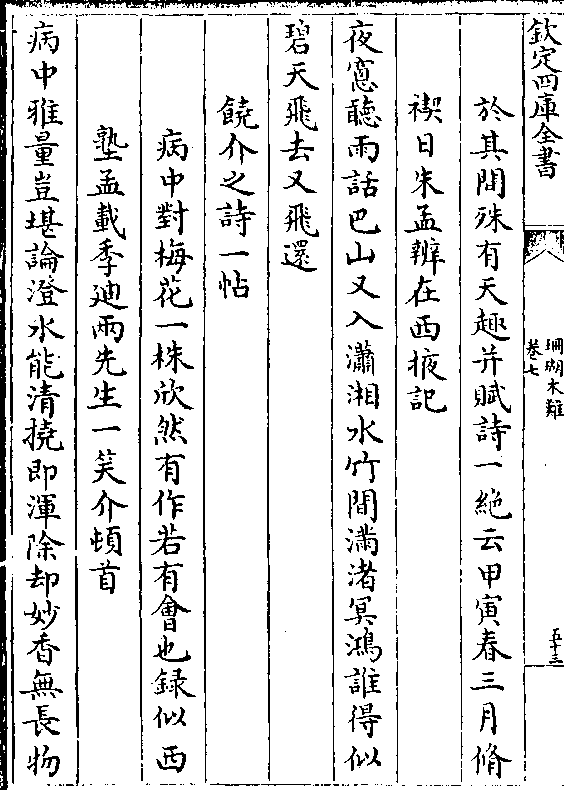 欽定四庫全書
珊瑚木難
卷七
五十三
於其間殊有天趣并賦詩一絶云甲寅春三月脩
禊日朱孟辯在西掖記
夜窻聽雨話巴山又入瀟湘水竹間滿渚冥鴻誰得似
碧天飛去又飛還
饒介之詩一帖
病中對梅花一株欣然有作若有會也録似西
塾孟載季迪兩先生一笑介頓首
病中雅量豈堪論澄水能清撓即渾除却妙香無長物